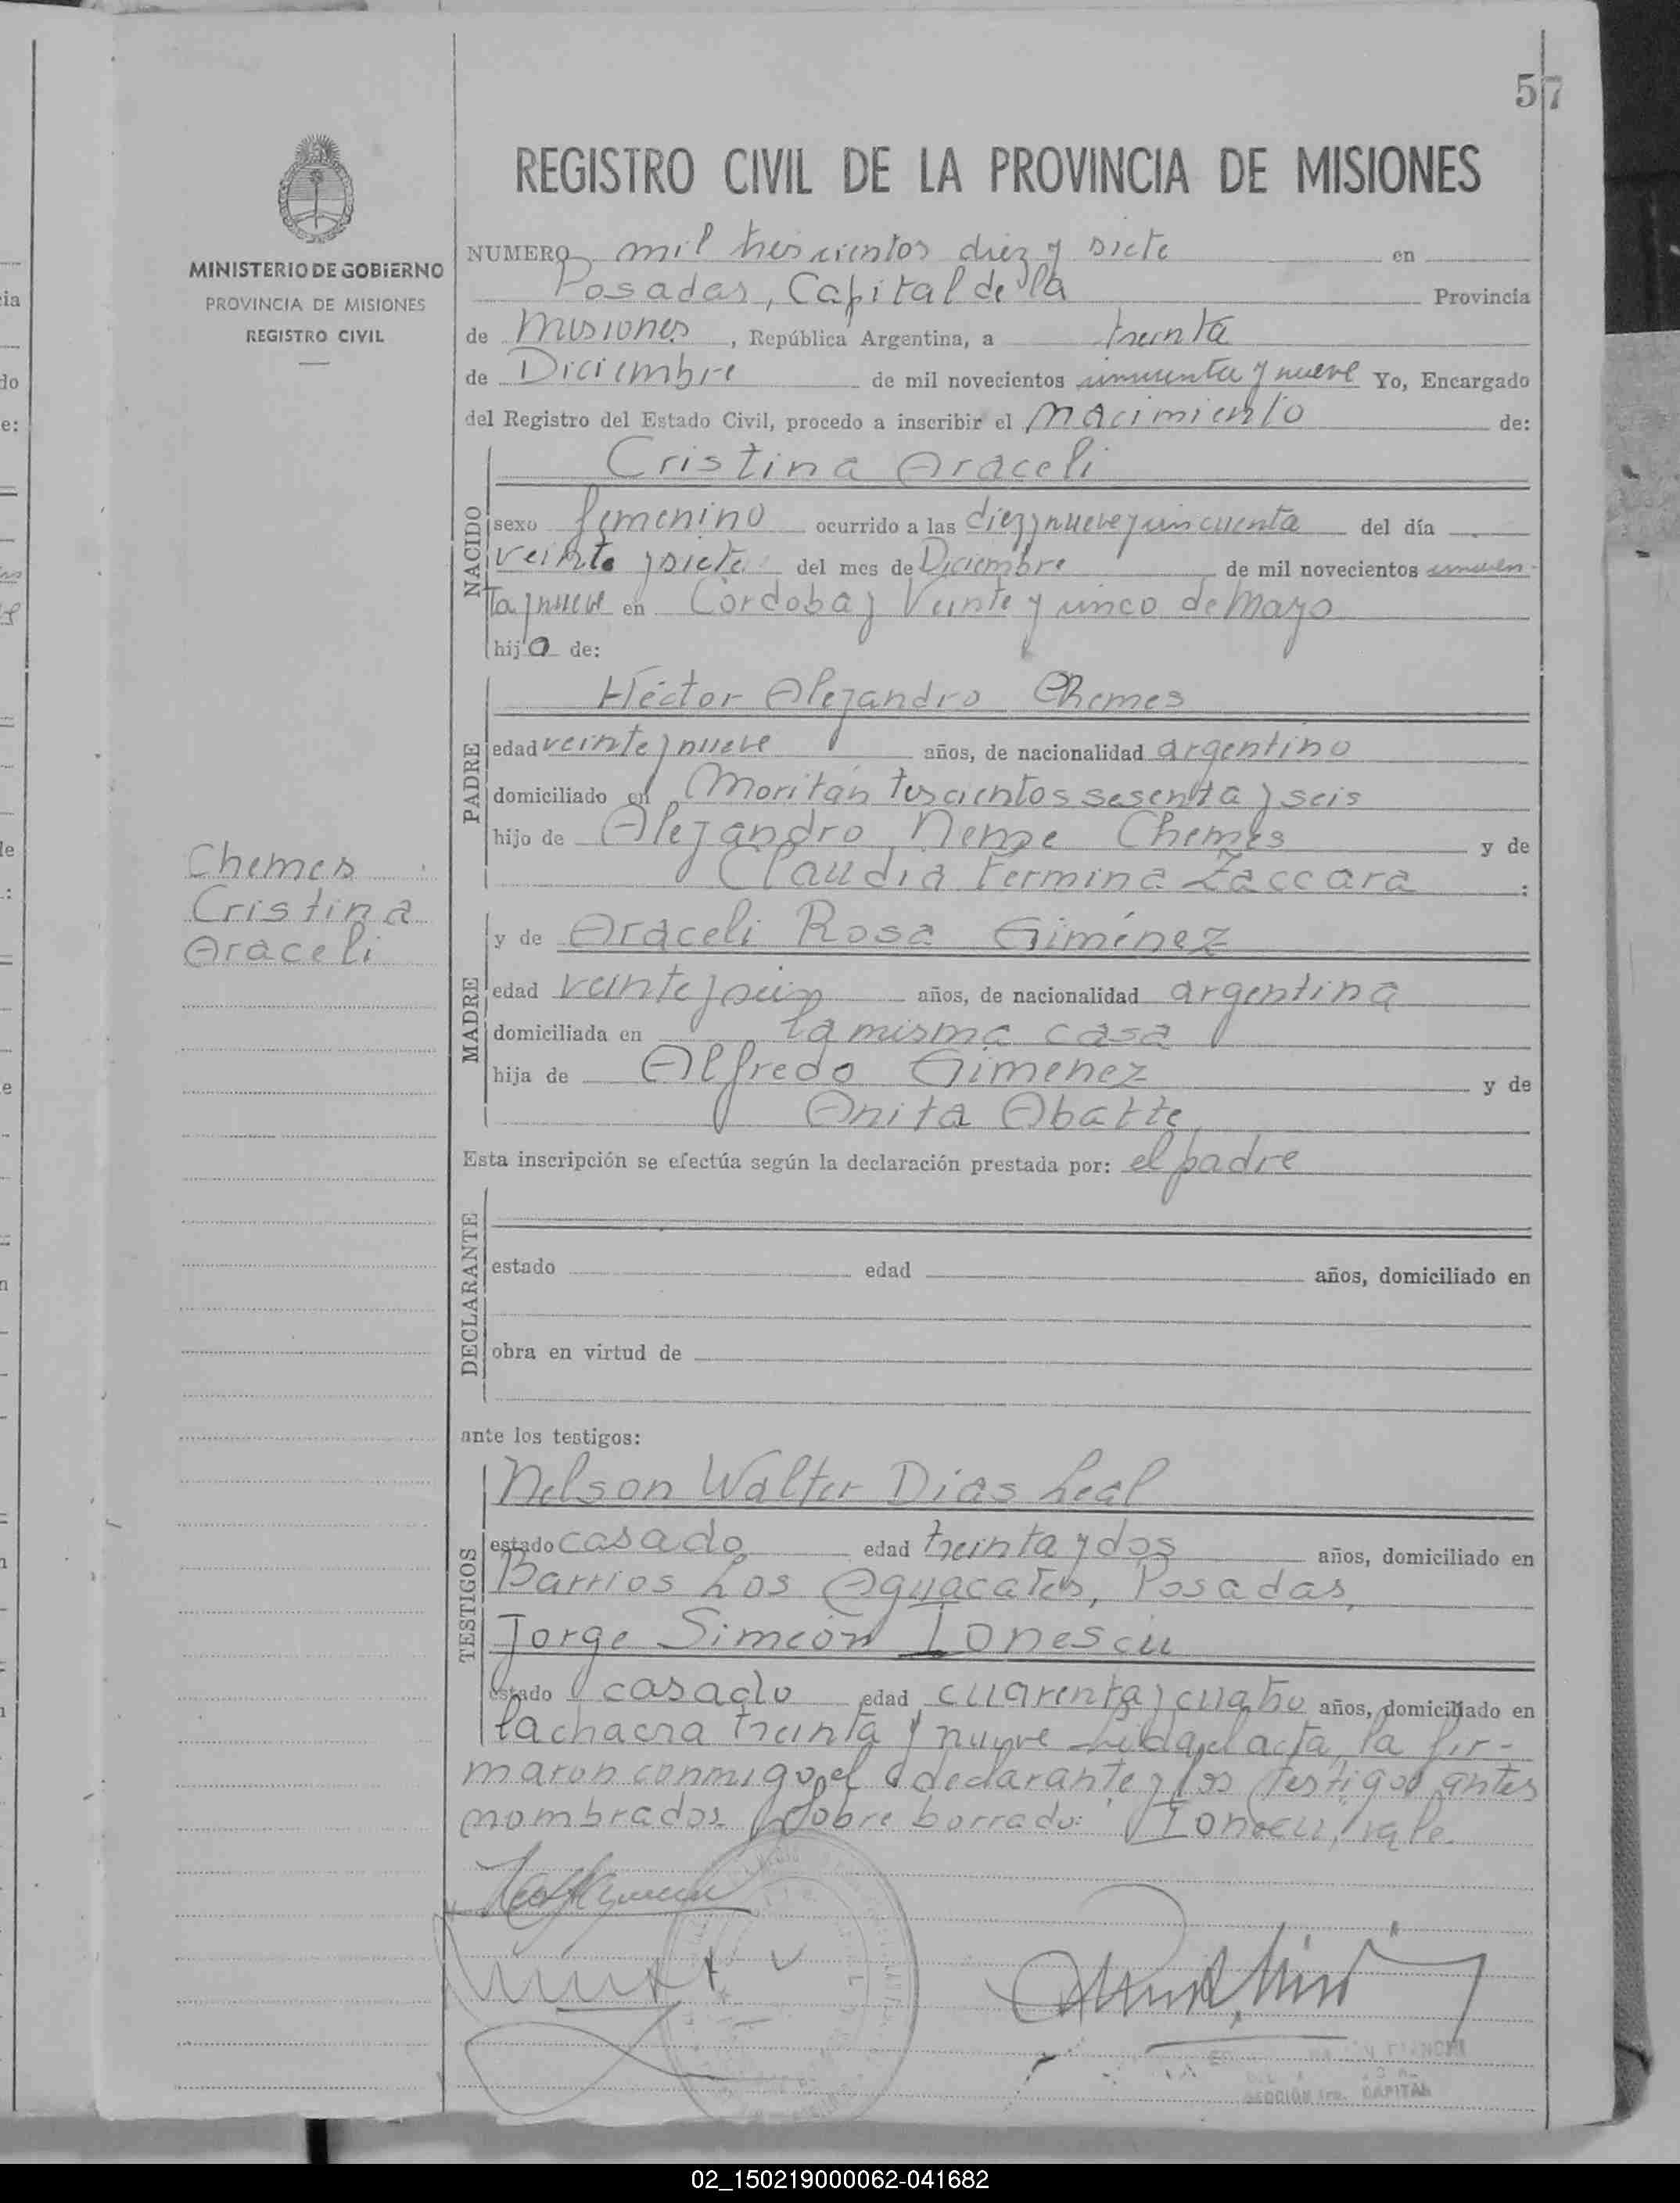 57
REGISTRO CIVIL DE LA PROVINCIA DE MISIONES
MINISTERIO DE GOBIERNO
PROVINCIA DE MISIONES
REGISTRO CIVIL
NUMERO mil trescientos diez y siete en
Posadas, Capital de la Provincia
de Misiones, República Argentina, a treinta
de Diciembre de mil novecientos cincuenta y nueve Yo, Encargado
del Registro del Estado Civil, procedo a inscribir el nacimiento de:
NACIDO
Cristina Araceli
sexo femenino ocurrido a las diez y nueve y cincuenta del día
veinte y siete del mes de Diciembre de mil novecientos cincuen-
ta y nueve en Cordoba y Veinte y cinco de Mayo
hija de:
PADRE
Héctor Alejandro Chemes
edad veinte y nueve años, de nacionalidad argentino
domiciliado en Moritán trescientos sesenta y seis
hijo de Alejandro Neme Chemes y de
Claudia Fermina Zaccara :
Chemes
Cristina
Araceli
MADRE
y de Araceli Rosa Giménez
edad veinte y seis años, de nacionalidad argentina
domiciliada en la misma casa
hija de Alfredo Gimenez y de
Anita Abatte,
Esta inscripción se efectúa según la declaración prestada por: el padre
DECLARANTE
estado edad años, domiciliado en
obra en virtud de
ante los testigos:
TESTIGOS
Nelson Walter Dias Leal
estado casado edad treinta y dos años, domiciliado en
Barrios Los Aguacates, Posadas,
Jorge Simeón Ionescu
estado casado edad cuarenta y cuatro años, domiciliado en
la chacra treinta y nueve Leida el acta, la fir-
maron conmigo, el declarante y los testigos antes
nombrados. Sobre borrado: "Ionescu", vale.
SECCIÓN 1ra. CAPITAL
02_150219000062-041682